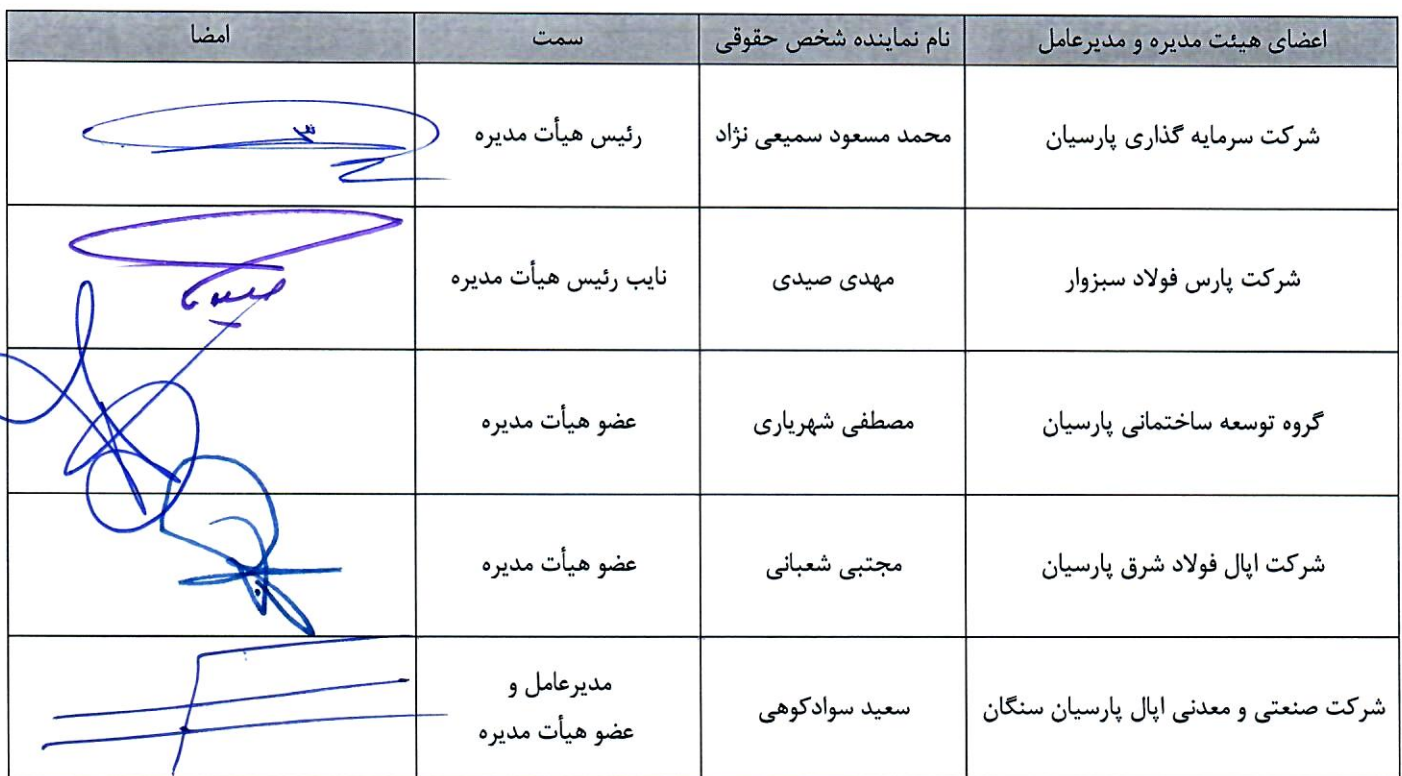 اعضای هیئت مدیره و مدیرعامل نام نماینده شخص حقوقی سمت امضا
شرکت سرمایه گذاری پارسیان محمد مسعود سمیعی نژاد رئیس هیأت مدیره
شرکت پارس فولاد سبزوار مهدی صیدی نایب رئیس هیأت مدیره
گروه توسعه ساختمانی پارسیان مصطفی شهریاری عضو هیأت مدیره
شرکت اپال فولاد شرق پارسیان مجتبی شعبانی عضو هیأت مدیره
شرکت صنعتی و معدنی اپال پارسیان سنگان سعید سوادکوهی مدیرعامل و
عضو هیأت مدیره